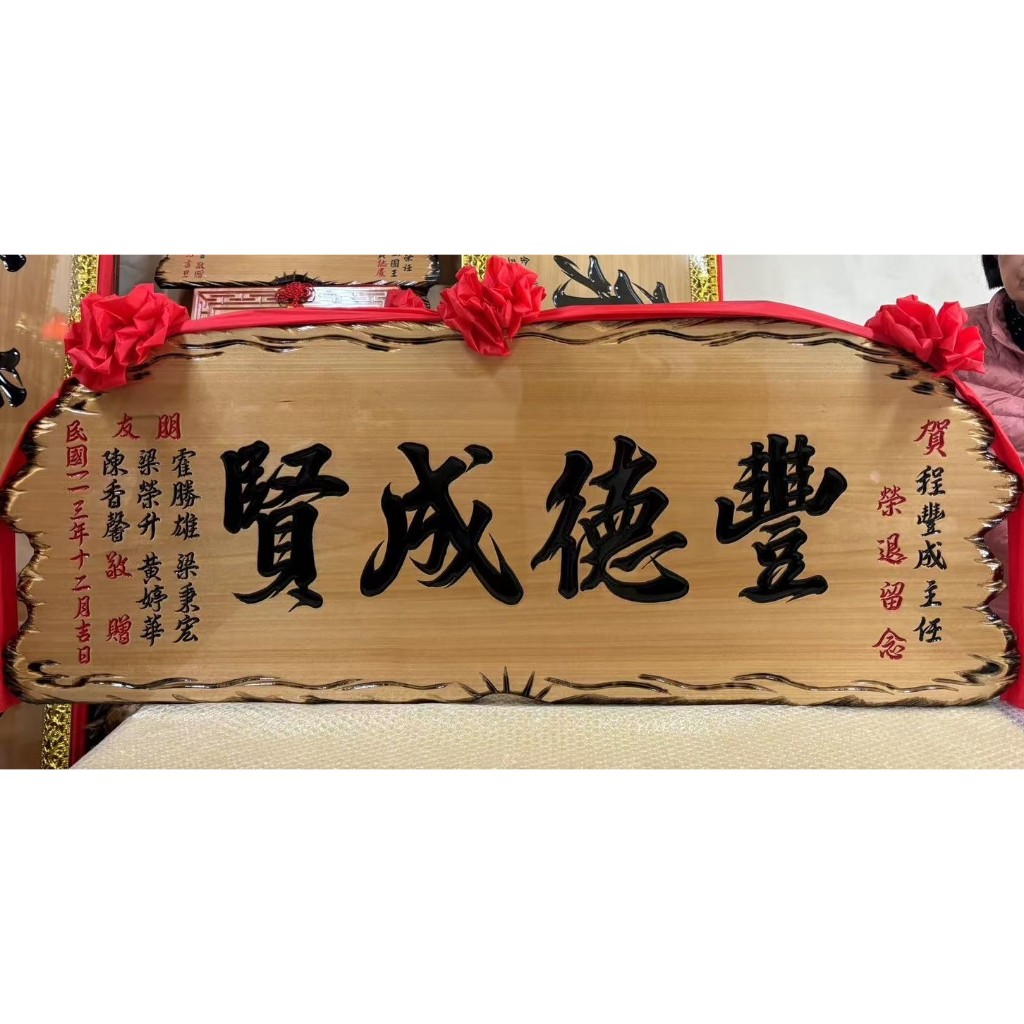 賀 程豐成主任
榮退留念
豐德成賢
朋友
霍勝雄 梁秉宏
梁榮升 黃婷華
陳香馨 敬贈
民國一一三年十二月吉日